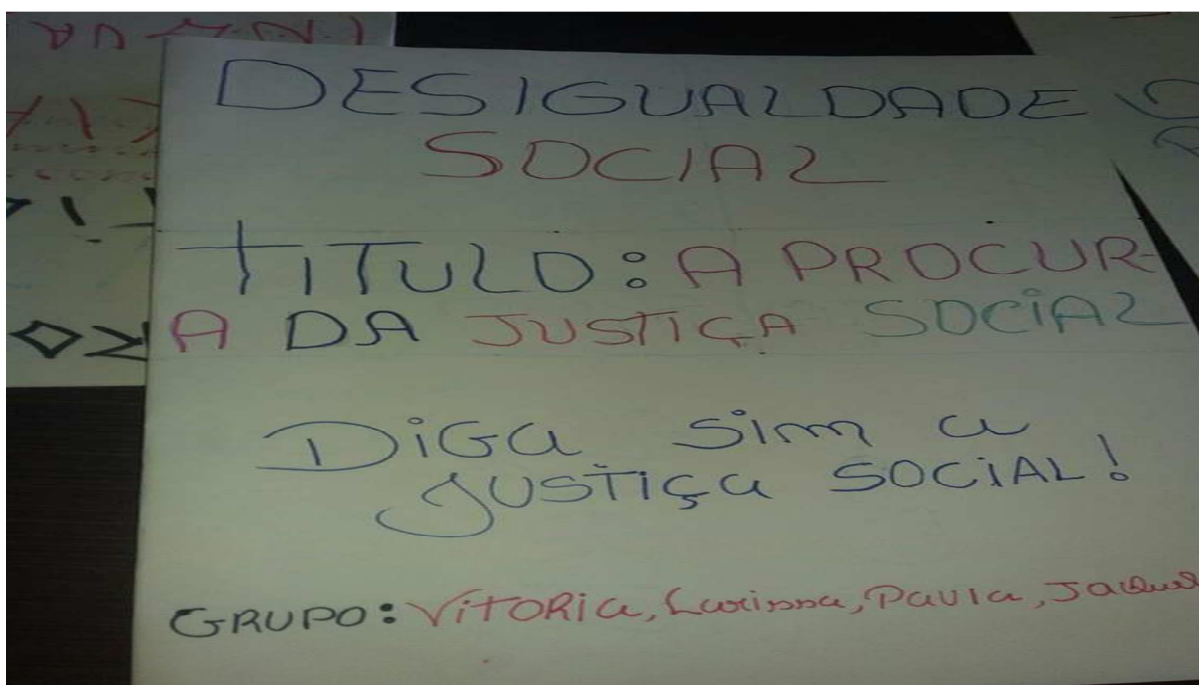 DESIGUALDADE
SOCIAL
TITULO: A PROCUR-
A DA JUSTIÇA SOCIAL
DiGa sim a
JUSTiça SOCiAL!
GRUPO: ViTORia, Larissa, Paula,